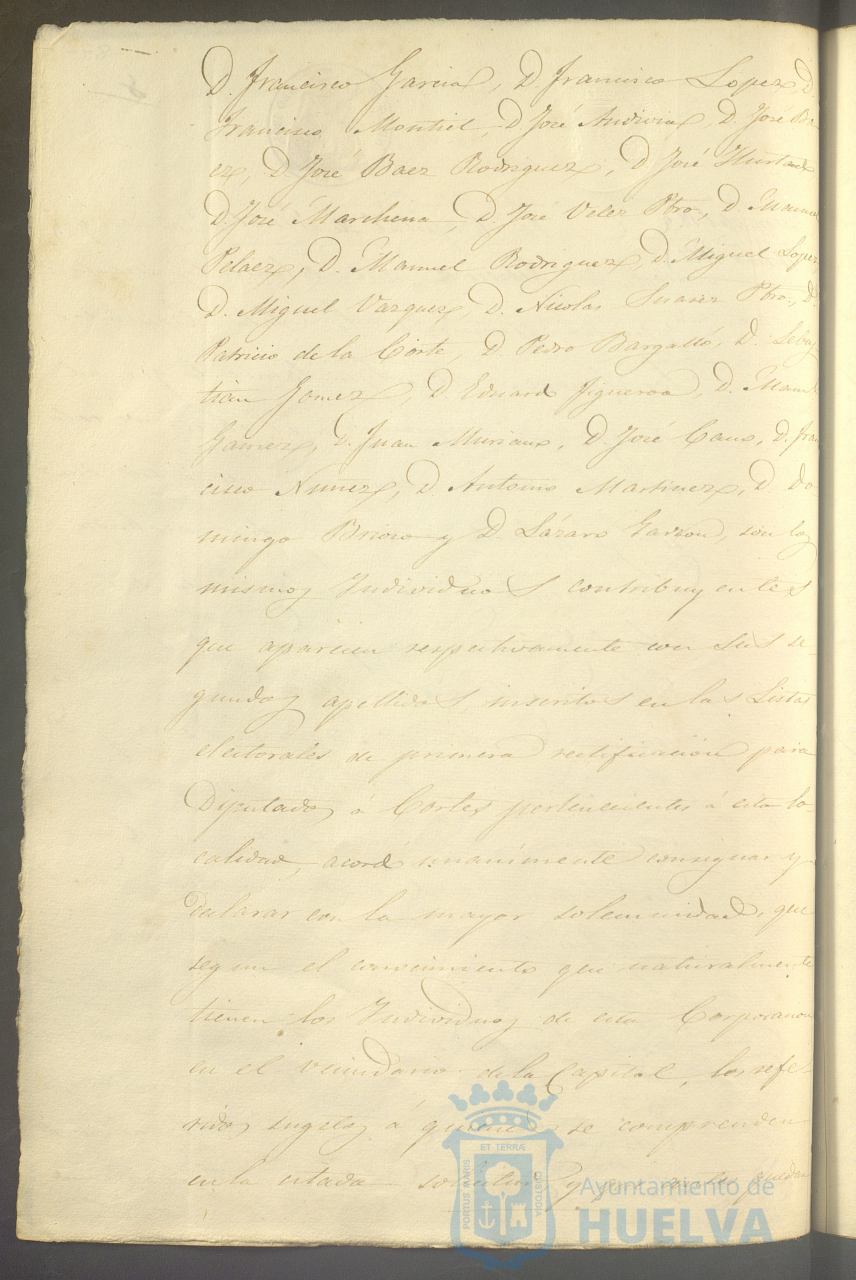 D. Francisco Garcia, D Francisco Lopez, D.
Francisco Montiel, D José Andivia, D. José Ba-
ez, D José Baez Rodriguez, D José Hurtado,
D. José Marchena, D. José Velez Pbro, D Manuel
Pelaez, D. Manuel Rodriguez, D. Miguel Lopez
D. Miguel Vazquez, D. Nicolas Suarez Pbro., D.
Patricio de la Corte, D Pedro Bargalló, D. Sebas
tian Gomez, D. Eduard Figueroa, D. Manuel
Gamez, D. Juan Muriano, D. José Cano, D. Fran
cisco Nuñez, D. Antonio Martinez, D Do-
mingo Brioso y D. Lázaro Garzon, son los
mismos Individuos contribuyentes
que aparecen respectivamente con sus se-
gundos apellidos, inscritos en las Listas
electorales de primera rectificacion para
Diputados á Cortes pertenecientes á esta lo-
calidad, acordó unanimente consignar y
declarar con la mayor solemnidad, que
segun el conocimiento que naturalmente
tienen los Individuos de esta Corporacion
en el vecindario de la Capital, los refe-
ridos sugetos á quienes se comprenden
en la citada solicitud y que antes quedan
ET TERRÆ
PORTUS MARIS
CUSTODIA
Ayuntamiento de
HUELVA